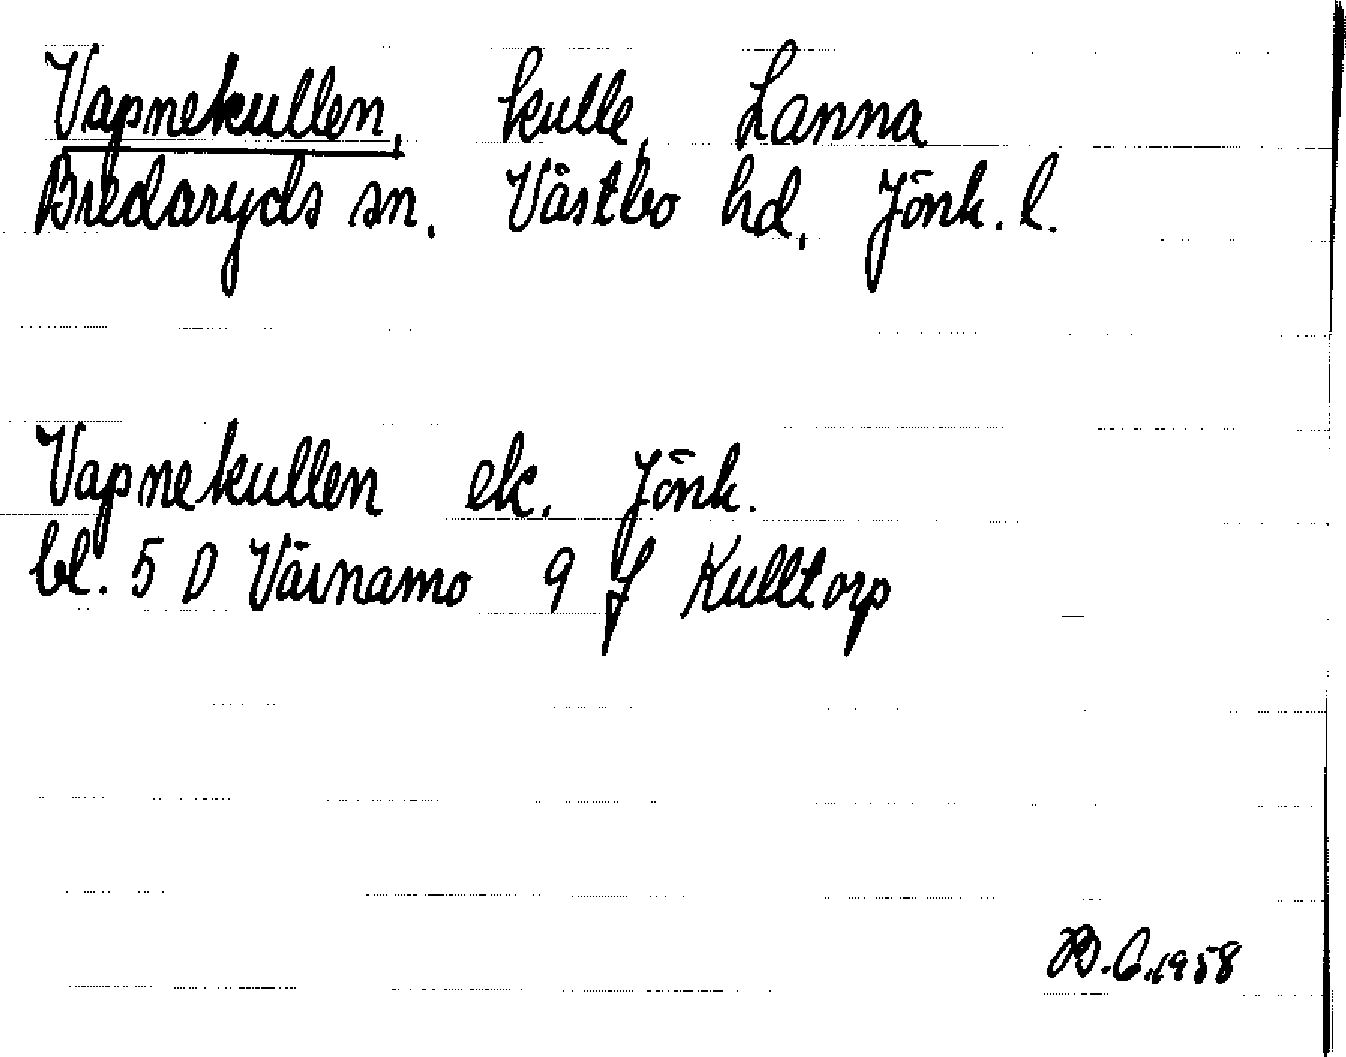 Vapnekullen, kulle, Lanna
Bredaryds sn. Västbo hd, Jönk. l.
Vapnekullen ek. Jönk.
bl. 5 D Värnamo 9 f Kulltorp
B.C. 1958